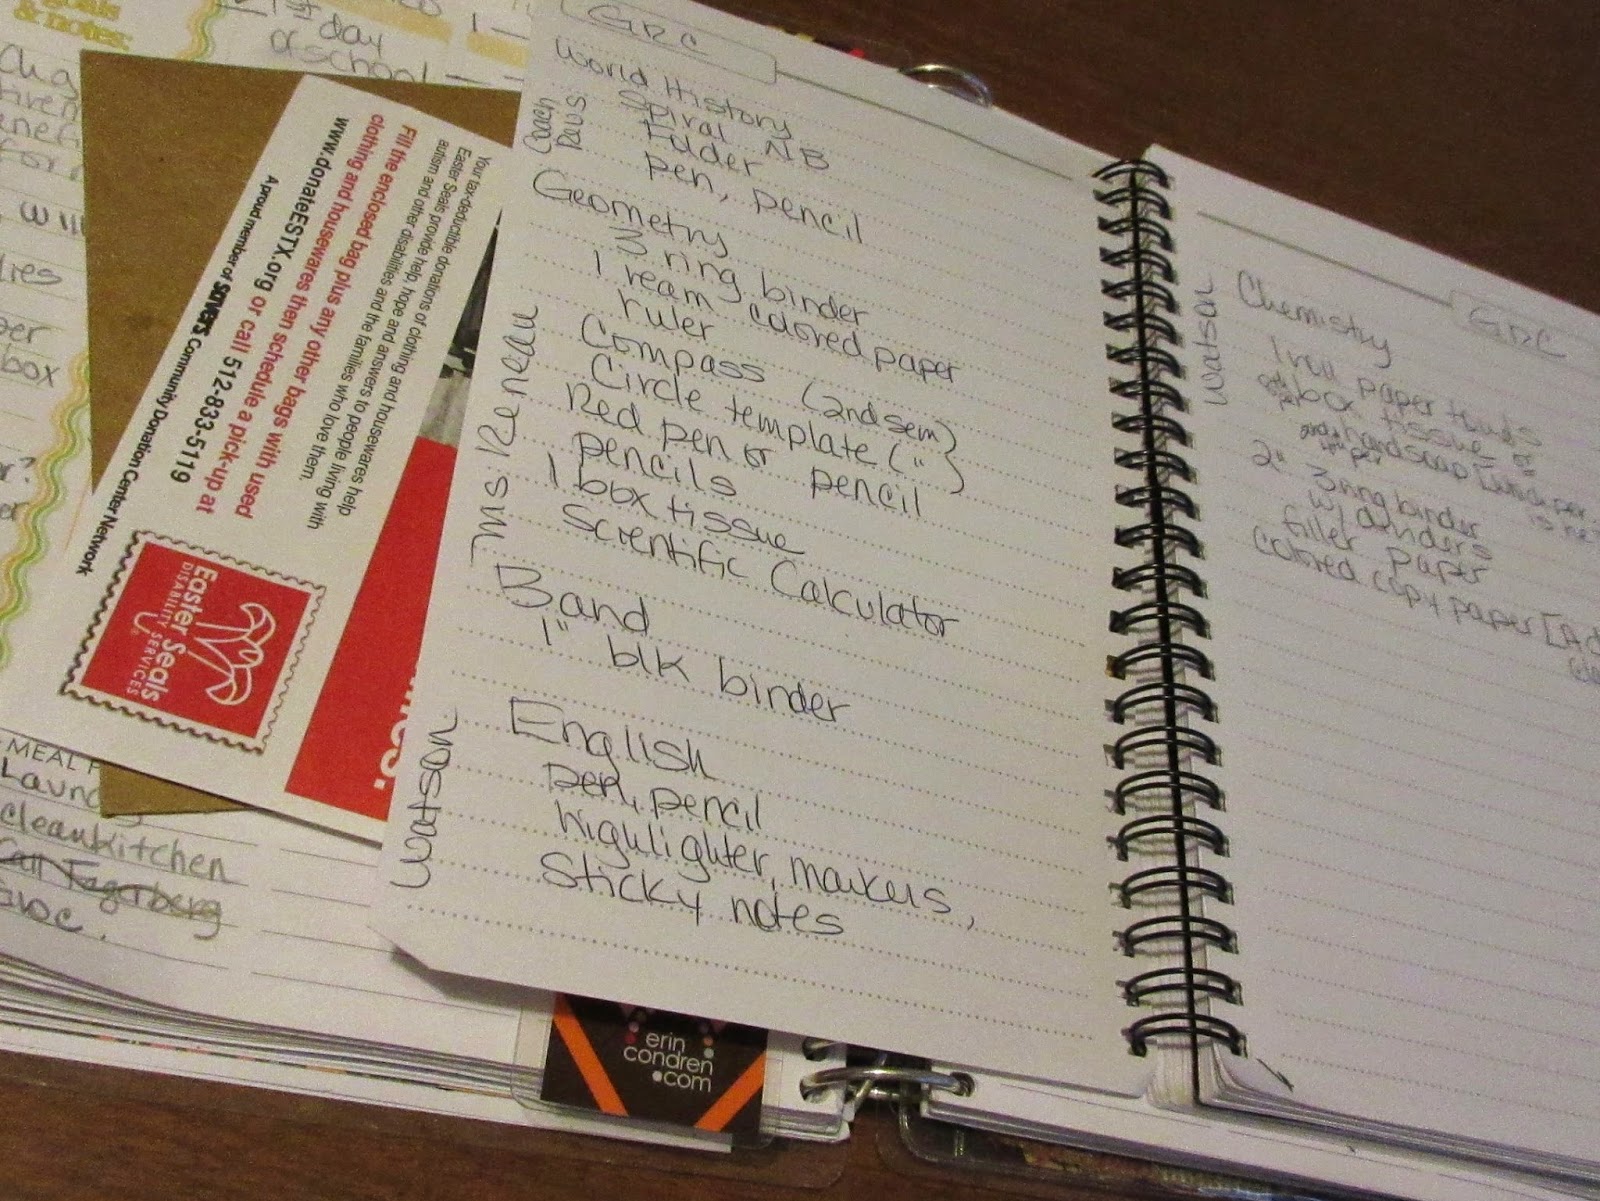 goals
& notes:
1st
day
of school
WILL
box
MEAL
cleankitchen
Call Fagerberg
Your tax-deductible donations of clothing and housewares help
Easter Seals provide help, hope and answers to people living with
autism and other disabilities and the families who love them.
Fill the enclosed bag plus any other bags with used
clothing and housewares then schedule a pick-up at
www.donateESTX.org or call 512-833-5119
A proud member of savers Community Donation Center Network
Easter Seals
DISABILITY SERVICES
GRC
World History
Coach
Spiral NB
Folder
pen, pencil
Geometry
Ms. Reneau
3 ring binder
1 ream colored paper
ruler
Compass (2nd sem)
Circle template ( " )
Red pen or pencil
pencils
1 box tissue
Scientific Calculator
Band
1" blk binder
English
Watson
pen, pencil
highlighter, markers,
Sticky notes
erin
condren
.com
GRC
Chemistry
Watson
1 roll paper towels
box tissue or
handsoap
2" 3 ring binder
w/ dividers
filler paper
colored copy paper